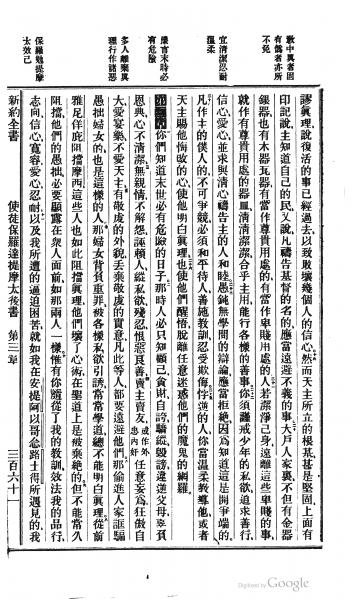 教中真者固
有偽者亦所
不免
宜清潔忍耐
溫柔
豫言末時必
有危險
多人離棄真
理行作諸惡
保羅勉提摩
太效己
謬眞理說復活的事已經過去以致敗壞幾個人的信心然而天主所立的根基甚是堅固上面有
印記說主知道自己的民又說凡稱基督的名的應當遠避不義的事大戶人家裏不但有金器
銀器也有木器瓦器有當作尊貴用處的有當作卑賤用處的人若潔淨己身遠離這些卑賤的事
就作有尊貴用處的器皿清清潔潔合乎主用能行各樣的善事你須謹戒少年的私欲追求善行
信心愛心並求與清心禱告主的人和睦愚鈍無學問的辯論應當拒絕因爲知道這是開爭端的
凡作主的僕人的不可爭競必須和平待人善施教訓忍受欺侮悖逆的人你當溫柔教導他或者
天主賜他悔改的心使他明白眞理也使他們醒悟脫離任意迷惑他們的魔鬼的網羅
第三章 你們知道末世必有危險的日子那時人必只知顧己貪財自誇驕傲毀謗違逆父母辜負
恩典心不清潔無親情不解怨誣賴人縱私欲殘忍恨惡良善賣主賣友或作外忠內奸任意妄爲狂傲自
大愛宴樂不愛天主有敬虔的外貌丟棄敬虔的實意凡此等人都要遠避他們那偷進人家誆騙
愚拙婦女的也是這樣的人那婦女背負重罪被各樣私欲引誘常常學道總不能明白眞理從前
雅尼佯庇阻擋摩西這些人也如此阻擋眞理他們壞了心術在聖道上是被棄絕的但不能常久
阻擋他們的愚拙必要顯露在衆人面前如那兩人一樣惟有你隨從了我的教訓效法我的品行
志向信心寬容愛心忍耐以及我所遭的逼迫困苦就如我在安提阿以哥念路士得所遇見的我
新約全書 使徒保羅達提摩太後書 第三章 三百六十一
Digitized by Google